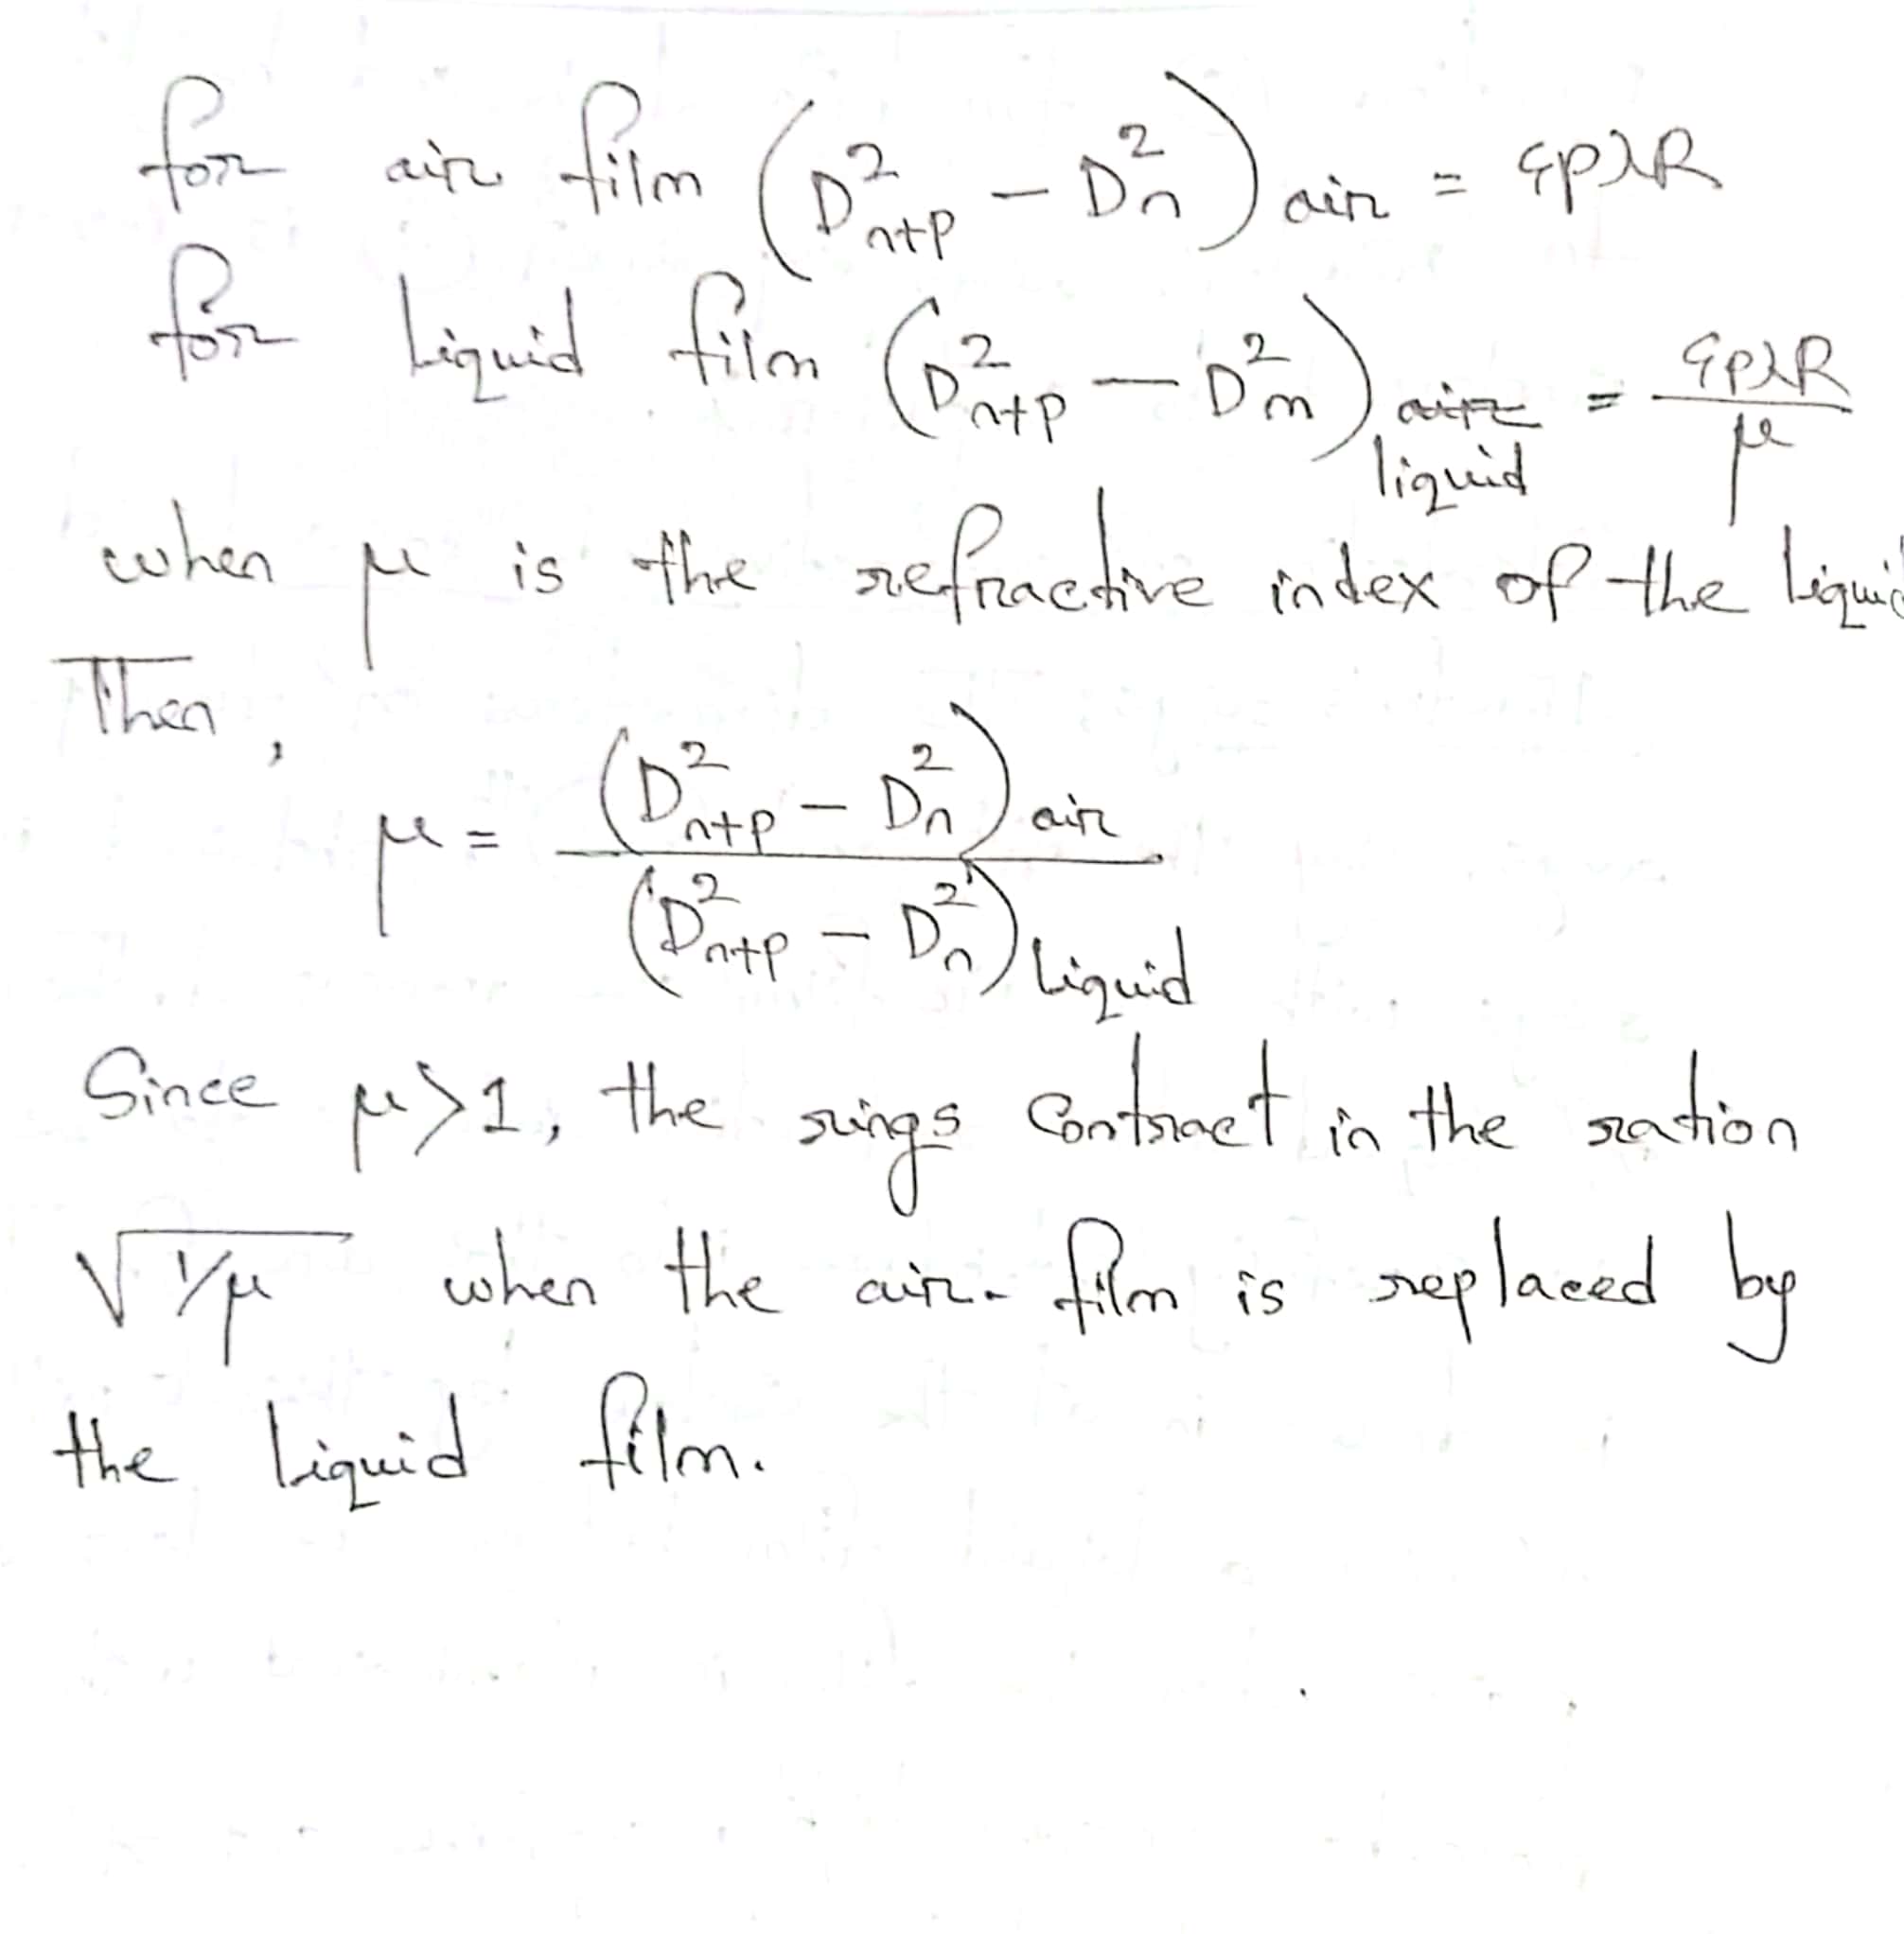 for air film (D²ₙ₊ₚ − D²ₙ) air = 4pλR
for liquid film (D²ₙ₊ₚ − D²ₘ) ~~air~~ liquid = 4pλR/μ
when μ is the refractive index of the liquid
Then,
μ = (D²ₙ₊ₚ − D²ₙ) air / (D²ₙ₊ₚ − D²ₙ) liquid
Since μ>1, the rings contract in the ration
√1/μ when the air-film is replaced by
the liquid film.